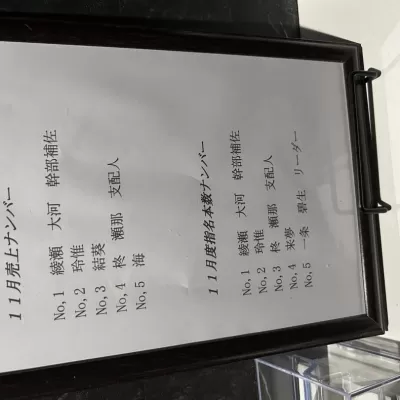 11月売上ナンバー
No,1 綾瀬 大河 幹部補佐
No,2 玲惟
No,3 結葵
No,4 柊 瀬那 支配人
No,5 海
11月度指名本数ナンバー
No,1 綾瀬 大河 幹部補佐
No,2 玲惟
No,3 柊 瀬那 支配人
No,4 来夢
No,5 一条 碧生 リーダー